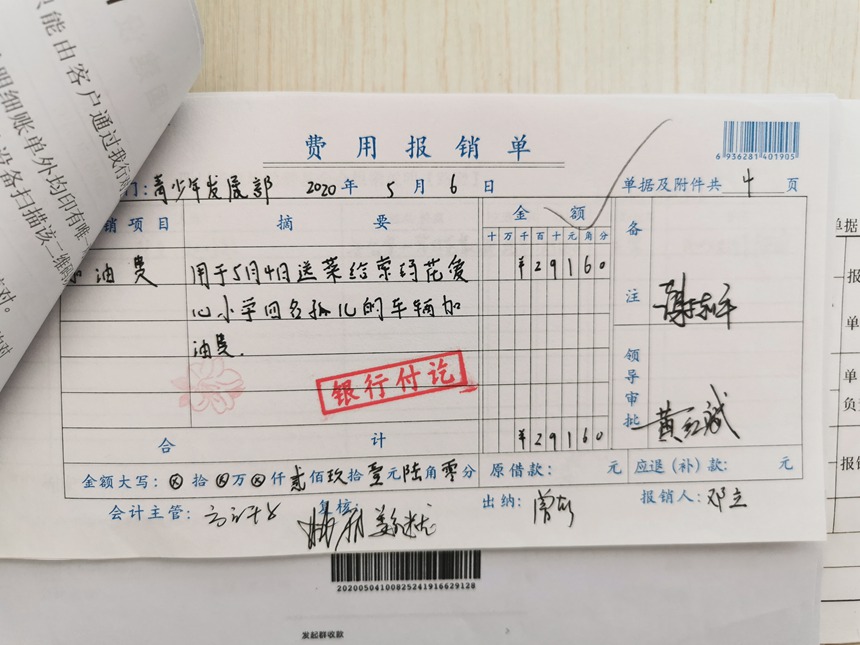 只能由客户通过我行
明细账单外均印有唯一
设备扫描该二维码
对。
费用报销单
6 936281 401905
门：青少年发展部 2020年 5月 6日 单据及附件共 4 页
销项目 摘要 金额 备注
十万千百十元角分
油费 用于5月4日送菜给 花爱 ¥29160
心小学四名孤儿的车辆加
油费.
银行付讫
领导审批
合计 ¥29160
金额大写：ⓧ拾ⓧ万ⓧ仟贰佰玖拾壹元陆角零分 原借款： 元 应退（补）款： 元
会计主管： 复核： 出纳： 报销人：邓立
20200504100825241916629128
发起群收款
单据
报
单
单
负
报